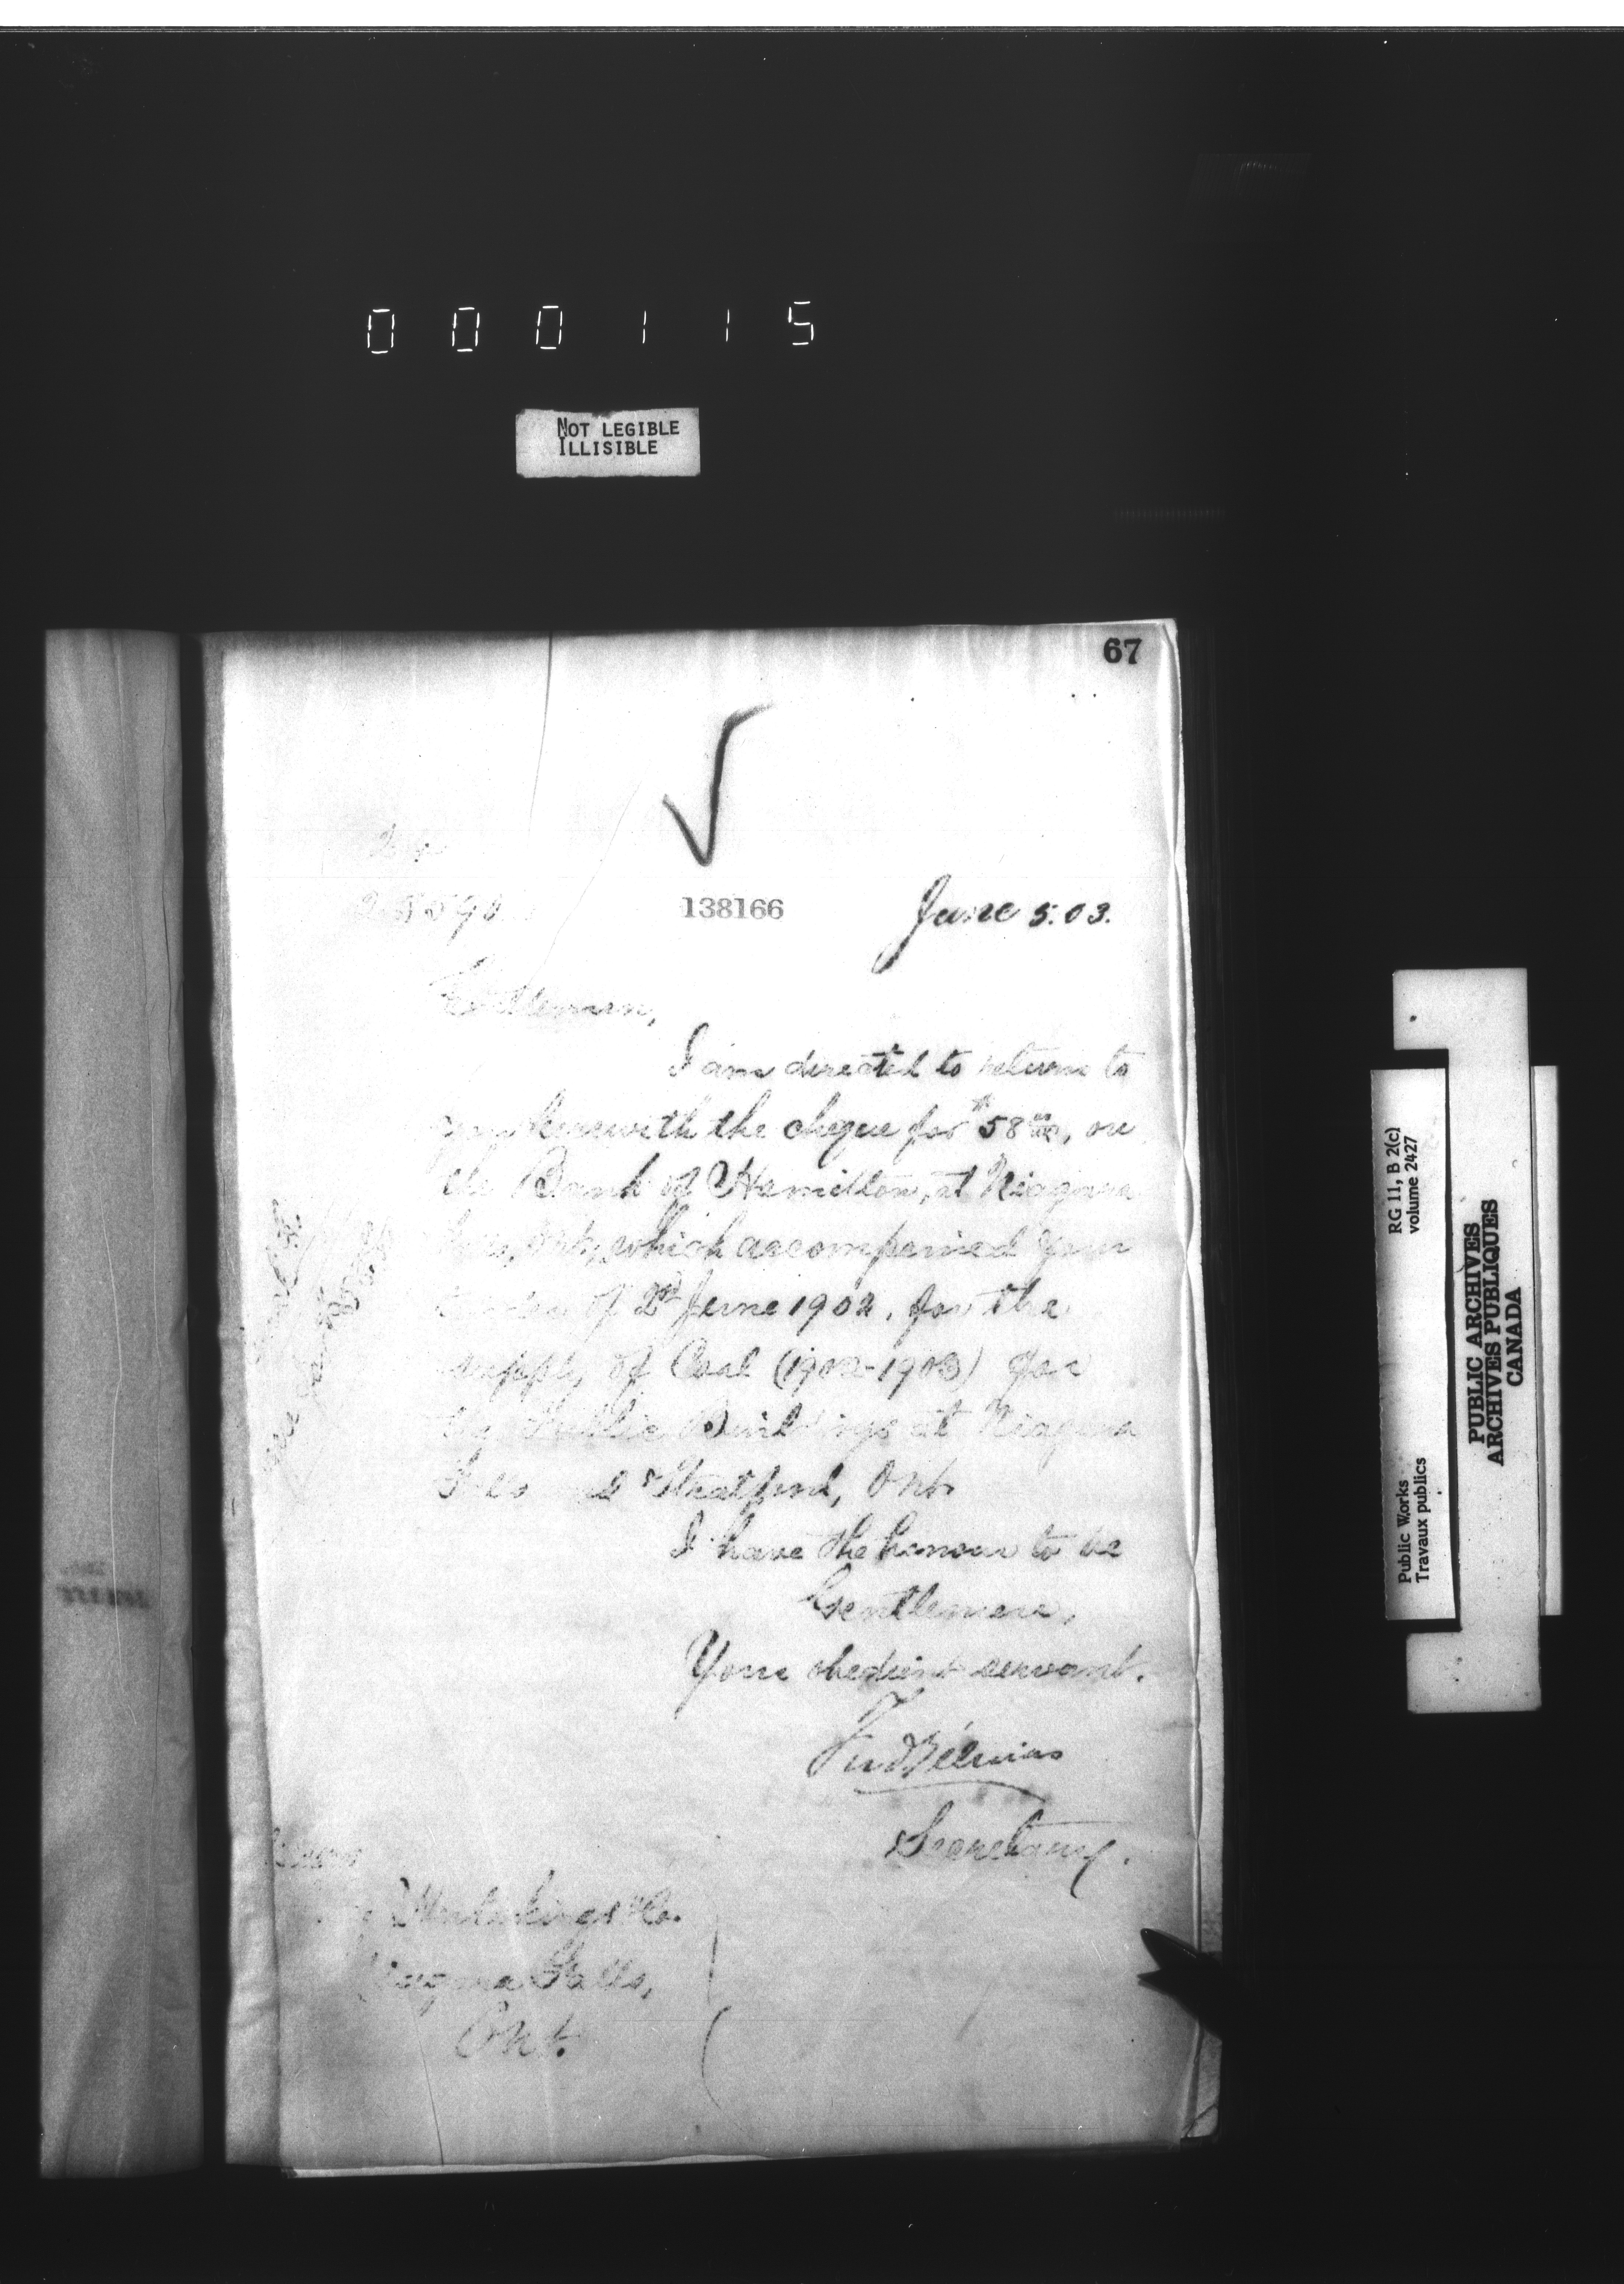 000115
NOT LEGIBLE
ILLISIBLE
67
138166
June 5. 03.
Gentlemen,
I am directed to return to
you herewith the cheque for $58 00/100, on
the Bank of Hamilton, at Niagara
Falls, Ont., which accompanied your
tender of 2nd June 1902, for the
supply of Coal (1902-1903) for
the Public Buildings at Niagara
Falls and Stratford, Ont.
I have the honour to be
Gentlemen,
Your obedient servant.
Fred Gélinas
Secretary.
Messrs
& Co.
Niagara Falls,
Ont.
RG 11, B 2(c)
volume 2427
Public Works
Travaux publics
PUBLIC ARCHIVES
ARCHIVES PUBLIQUES
CANADA